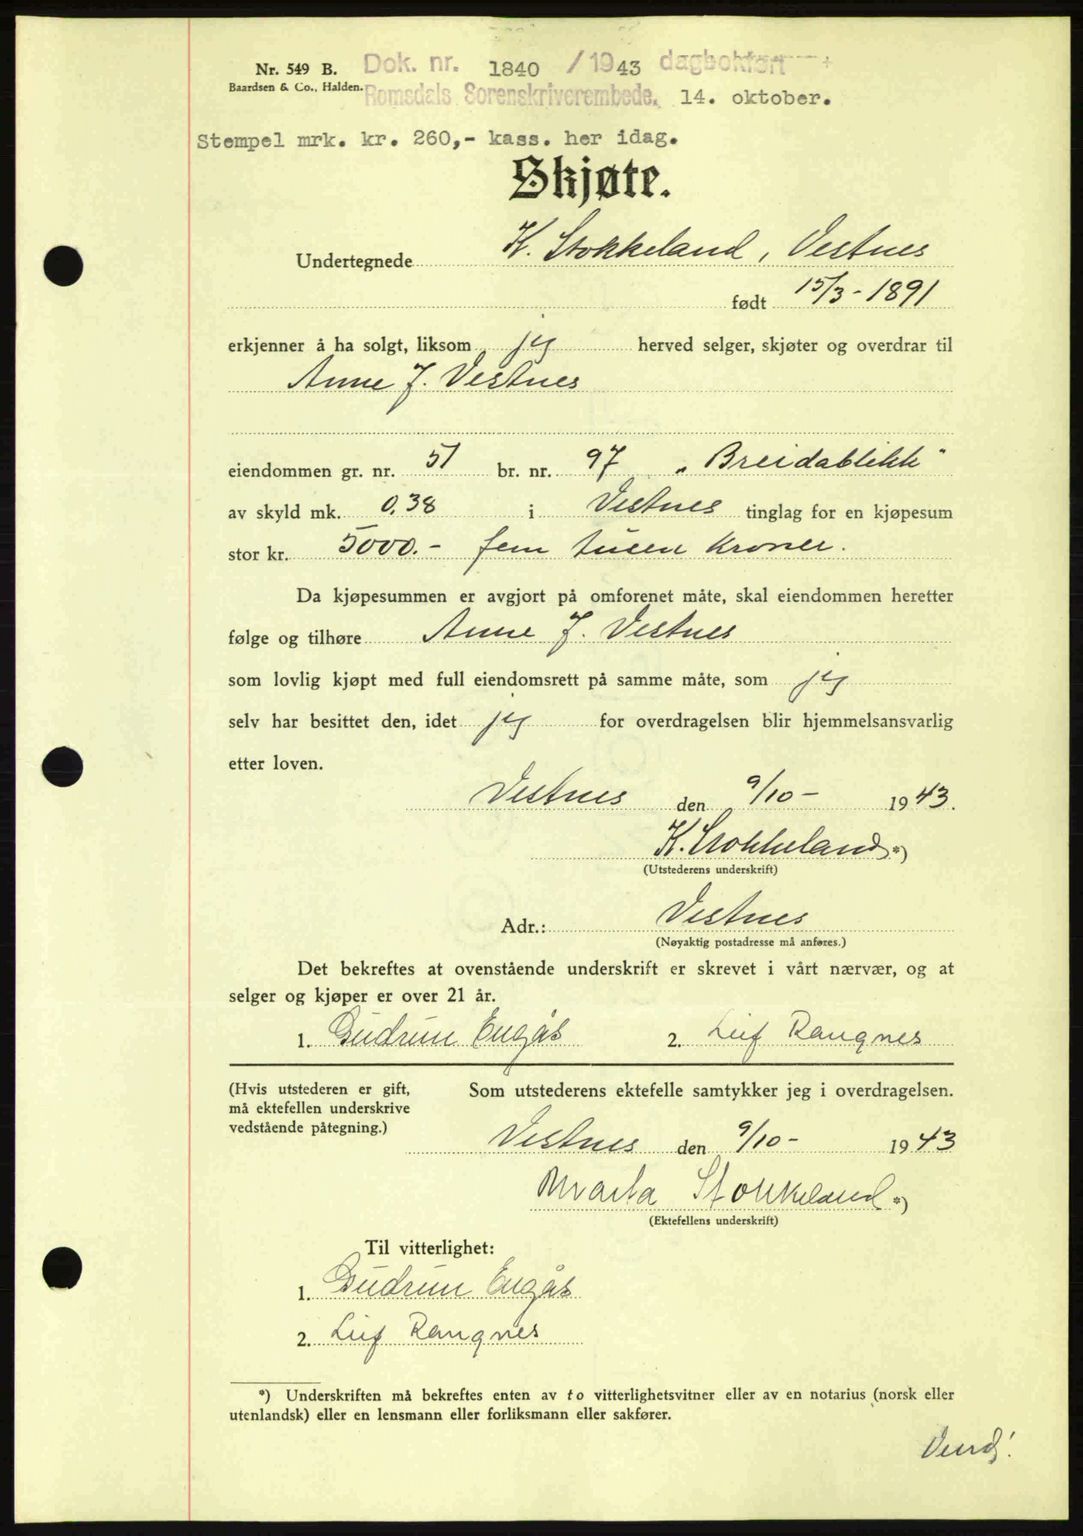 Nr. 549 B. Dok. nr. 1840 / 1943 dagbokført
Baardsen & Co., Halden. Romsdals Sorenskriverembede, 14. oktober.
Stempel mrk. kr. 260,- kass. her idag.
Skjøte.
Undertegnede K. Stokkeland, Vestnes
født 15/3-1891
erkjenner å ha solgt, liksom jeg herved selger, skjøter og overdrar til
Anne J. Vestnes
eiendommen gr. nr. 51 br. nr. 97 „Breidablikk"
av skyld mk. 0,38 i Vestnes tinglag for en kjøpesum
stor kr. 5000.- fem tusen kroner.
Da kjøpesummen er avgjort på omforenet måte, skal eiendommen heretter
følge og tilhøre Anne J. Vestnes
som lovlig kjøpt med full eiendomsrett på samme måte, som jeg
selv har besittet den, idet jeg for overdragelsen blir hjemmelsansvarlig
etter loven.
Vestnes den 9/10- 1943.
K. Stokkeland *)
(Utstederens underskrift)
Adr.: Vestnes
(Nøyaktig postadresse må anføres.)
Det bekreftes at ovenstående underskrift er skrevet i vårt nærvær, og at
selger og kjøper er over 21 år.
1. Gudrun Engås 2. Leif Rangnes
(Hvis utstederen er gift, Som utstederens ektefelle samtykker jeg i overdragelsen.
må ektefellen underskrive
vedstående påtegning.)
Vestnes den 9/10- 1943
Marta Stokkeland *)
(Ektefellens underskrift)
Til vitterlighet:
1. Gudrun Engås
2. Leif Rangnes
*) Underskriften må bekreftes enten av to vitterlighetsvitner eller av en notarius (norsk eller
utenlandsk) eller en lensmann eller forliksmann eller sakfører.
Vend!